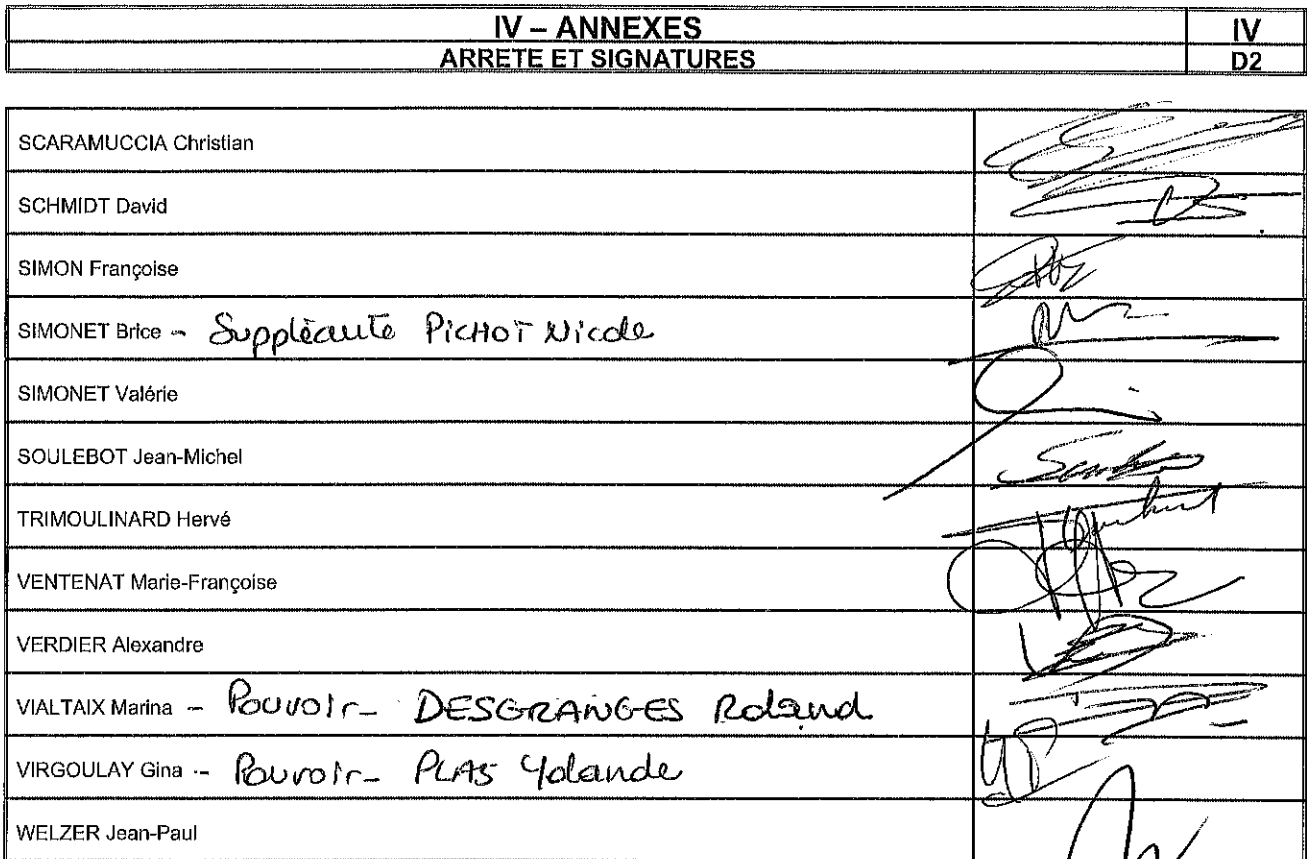 IV – ANNEXES
IV
ARRETE ET SIGNATURES
D2
SCARAMUCCIA Christian
SCHMIDT David
SIMON Françoise
SIMONET Brice - Suppléante PICHOT Nicole
SIMONET Valérie
SOULEBOT Jean-Michel
TRIMOULINARD Hervé
VENTENAT Marie-Françoise
VERDIER Alexandre
VIALTAIX Marina - Pouvoir - DESGRANGES Roland
VIRGOULAY Gina - Pouvoir - PLAS Yolande
WELZER Jean-Paul